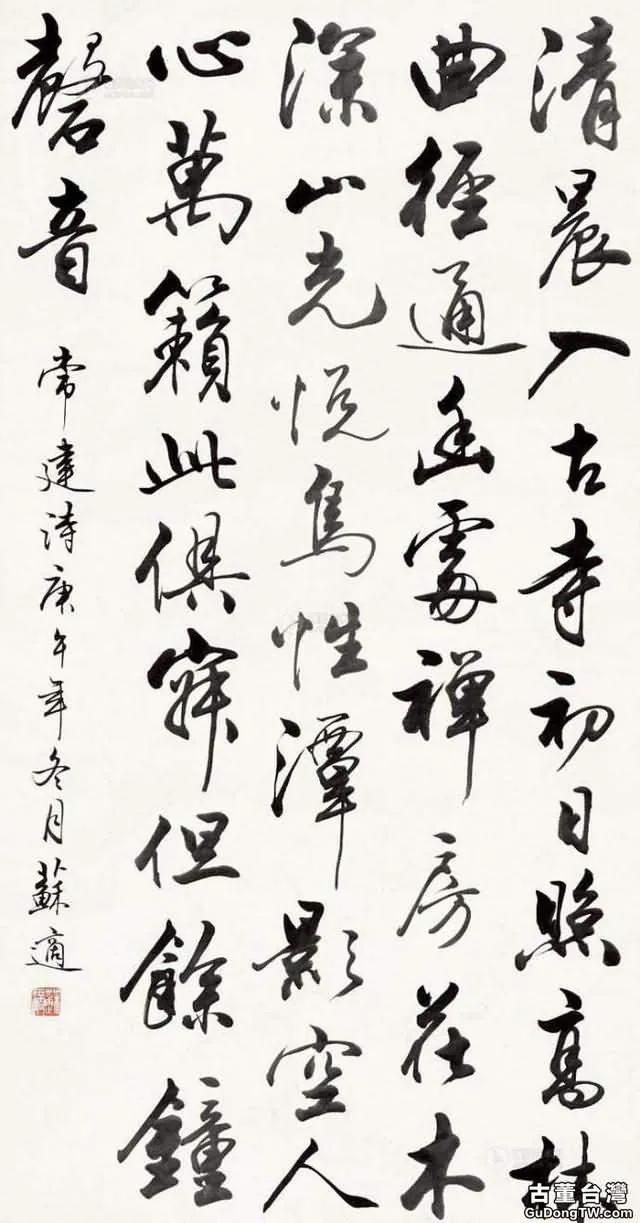 清晨入古寺初日照高林
曲徑通幽處禪房花木
深山光悦鳥性潭影空人
心萬籟此俱寂但餘鐘
磬音 常建詩庚午年冬月蘇適
古董台灣
GuDongTW.com